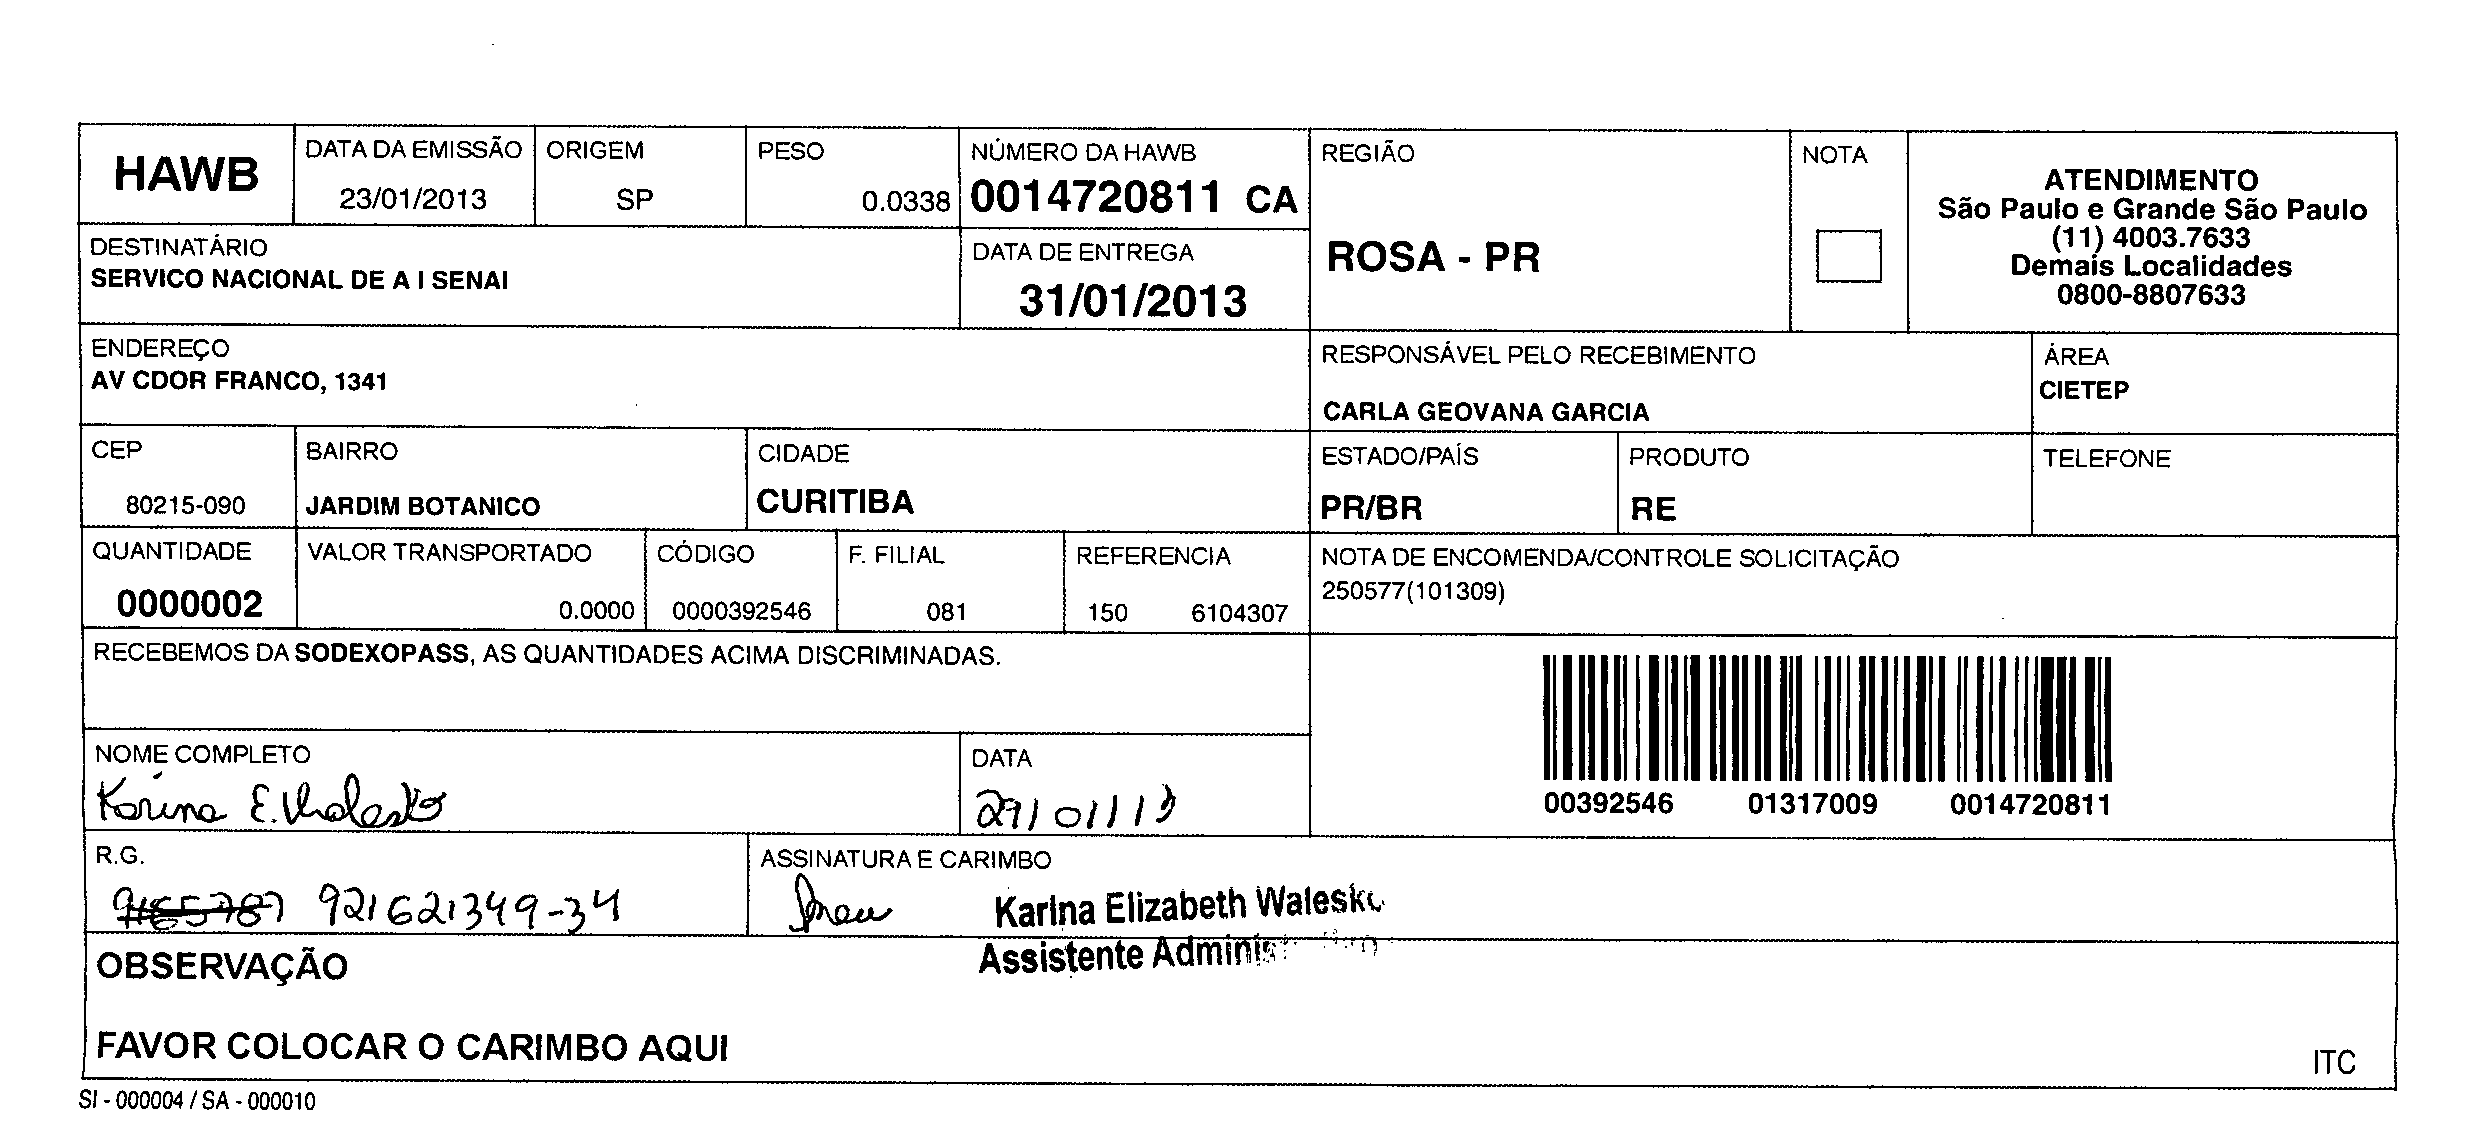 HAWB
DATA DA EMISSÃO
23/01/2013
ORIGEM
SP
PESO
0.0338
NÚMERO DA HAWB
0014720811 CA
REGIÃO
ROSA - PR
NOTA
ATENDIMENTO
São Paulo e Grande São Paulo
(11) 4003.7633
Demais Localidades
0800-8807633
DESTINATÁRIO
SERVICO NACIONAL DE A I SENAI
DATA DE ENTREGA
31/01/2013
ENDEREÇO
AV CDOR FRANCO, 1341
RESPONSÁVEL PELO RECEBIMENTO
CARLA GEOVANA GARCIA
ÁREA
CIETEP
CEP
80215-090
BAIRRO
JARDIM BOTANICO
CIDADE
CURITIBA
ESTADO/PAÍS
PR/BR
PRODUTO
RE
TELEFONE
QUANTIDADE
0000002
VALOR TRANSPORTADO
0.0000
CÓDIGO
0000392546
F. FILIAL
081
REFERENCIA
150 6104307
NOTA DE ENCOMENDA/CONTROLE SOLICITAÇÃO
250577(101309)
RECEBEMOS DA SODEXOPASS, AS QUANTIDADES ACIMA DISCRIMINADAS.
00392546 01317009 0014720811
NOME COMPLETO
Karina E.
DATA
29/01/13
R.G.
921621349-34
ASSINATURA E CARIMBO
Karina Elizabeth
Assistente
OBSERVAÇÃO
FAVOR COLOCAR O CARIMBO AQUI
ITC
SI - 000004 / SA - 000010